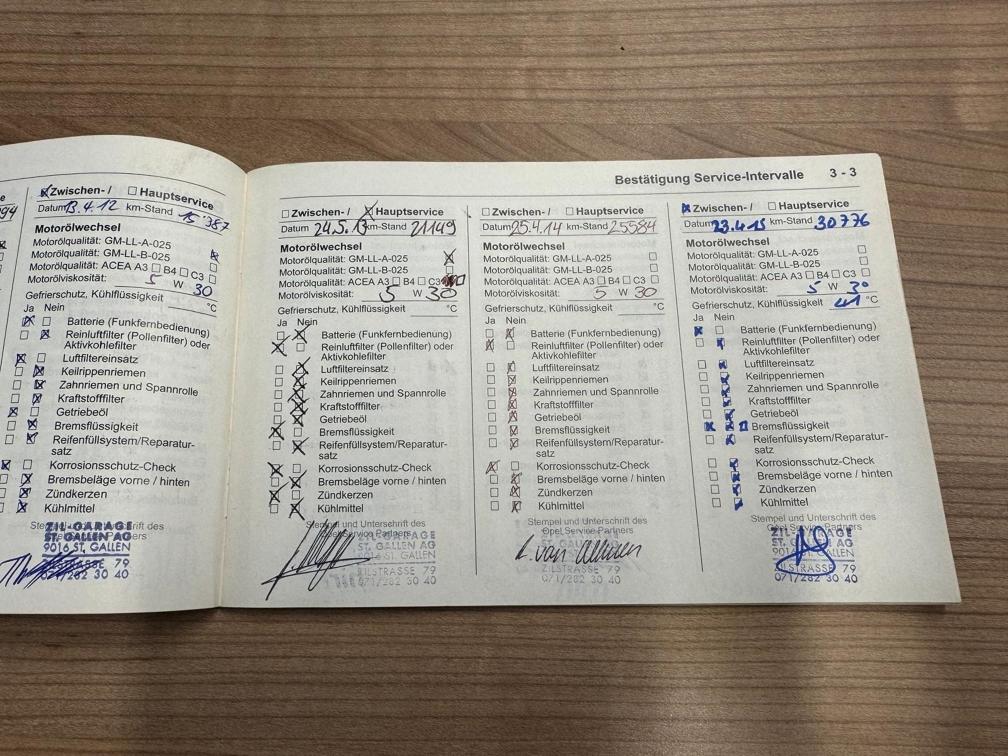 Bestätigung Service-Intervalle 3 - 3
Zwischen- / Hauptservice
Datum 13.4.12 km-Stand 15'387
Motorölwechsel
Motorölqualität: GM-LL-A-025
Motorölqualität: GM-LL-B-025
Motorölqualität: ACEA A3 B4 C3
Motorölviskosität: 5 W 30
Gefrierschutz, Kühlflüssigkeit °C
Ja Nein
Batterie (Funkfernbedienung)
Reinluftfilter (Pollenfilter) oder
Aktivkohlefilter
Luftfiltereinsatz
Keilrippenriemen
Zahnriemen und Spannrolle
Kraftstofffilter
Getriebeöl
Bremsflüssigkeit
Reifenfüllsystem/Reparatur-
satz
Korrosionsschutz-Check
Bremsbeläge vorne / hinten
Zündkerzen
Kühlmittel
Stempel und Unterschrift des
Opel Service Partners
ZIL-GARAGE
ST. GALLEN AG
9016 ST. GALLEN
ZILSTRASSE 79
071/282 30 40
Zwischen- / Hauptservice
Datum 24.5.13 km-Stand 21149
Motorölwechsel
Motorölqualität: GM-LL-A-025
Motorölqualität: GM-LL-B-025
Motorölqualität: ACEA A3 B4 C3
Motorölviskosität: 5 W 30
Gefrierschutz, Kühlflüssigkeit °C
Ja Nein
Batterie (Funkfernbedienung)
Reinluftfilter (Pollenfilter) oder
Aktivkohlefilter
Luftfiltereinsatz
Keilrippenriemen
Zahnriemen und Spannrolle
Kraftstofffilter
Getriebeöl
Bremsflüssigkeit
Reifenfüllsystem/Reparatur-
satz
Korrosionsschutz-Check
Bremsbeläge vorne / hinten
Zündkerzen
Kühlmittel
Stempel und Unterschrift des
Opel Service Partners
ST. GALLEN AG
9016 ST. GALLEN
ZILSTRASSE 79
071/282 30 40
Zwischen- / Hauptservice
Datum 25.4.14 km-Stand 25584
Motorölwechsel
Motorölqualität: GM-LL-A-025
Motorölqualität: GM-LL-B-025
Motorölqualität: ACEA A3 B4 C3
Motorölviskosität: 5 W 30
Gefrierschutz, Kühlflüssigkeit °C
Ja Nein
Batterie (Funkfernbedienung)
Reinluftfilter (Pollenfilter) oder
Aktivkohlefilter
Luftfiltereinsatz
Keilrippenriemen
Zahnriemen und Spannrolle
Kraftstofffilter
Getriebeöl
Bremsflüssigkeit
Reifenfüllsystem/Reparatur-
satz
Korrosionsschutz-Check
Bremsbeläge vorne / hinten
Zündkerzen
Kühlmittel
Stempel und Unterschrift des
Opel Service Partners
ZILSTRASSE 79
071/282 30 40
Zwischen- / Hauptservice
Datum 23.4.15 km-Stand 30776
Motorölwechsel
Motorölqualität: GM-LL-A-025
Motorölqualität: GM-LL-B-025
Motorölqualität: ACEA A3 B4 C3
Motorölviskosität: 5 W 30
Gefrierschutz, Kühlflüssigkeit °C
Ja Nein
Batterie (Funkfernbedienung)
Reinluftfilter (Pollenfilter) oder
Aktivkohlefilter
Luftfiltereinsatz
Keilrippenriemen
Zahnriemen und Spannrolle
Kraftstofffilter
Getriebeöl
Bremsflüssigkeit
Reifenfüllsystem/Reparatur-
satz
Korrosionsschutz-Check
Bremsbeläge vorne / hinten
Zündkerzen
Kühlmittel
Stempel und Unterschrift des
Opel Service Partners
ZILSTRASSE 79
071/282 30 40